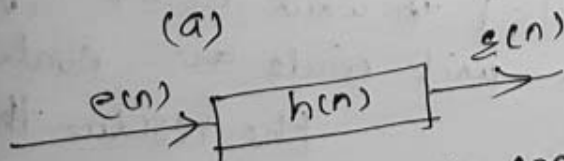 (a)
e(n)
h(n)
s(n)